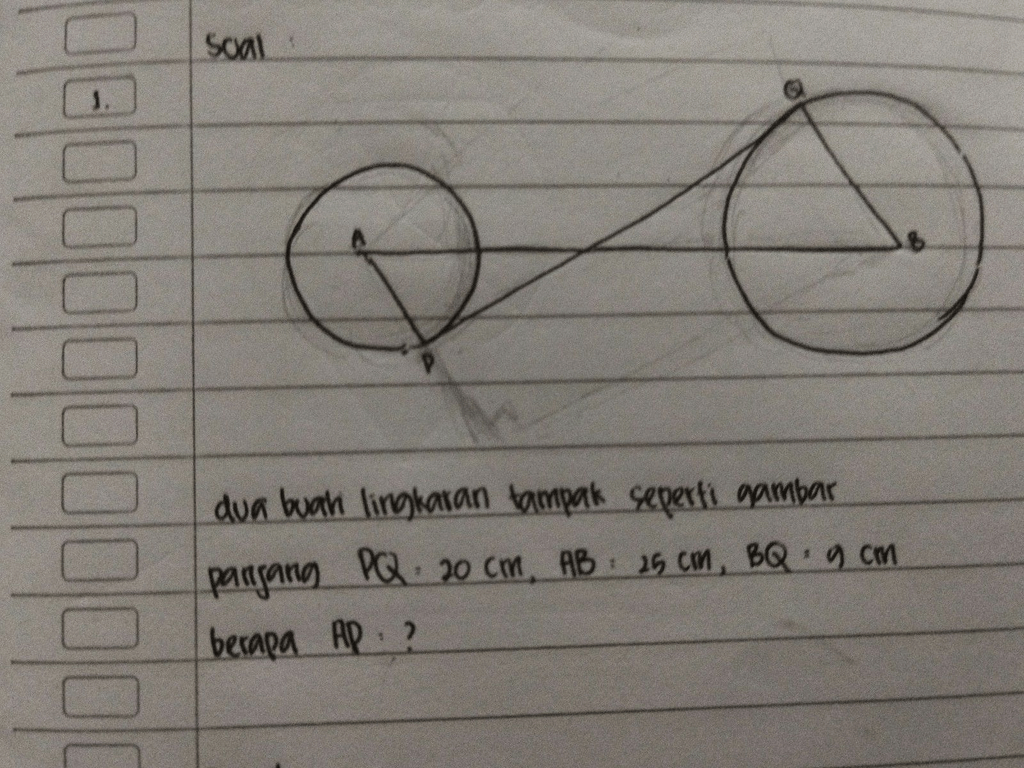 soal :
1.
Q
A
B
P
dua buah lingkaran tampak seperti gambar
panjang PQ = 20 cm, AB = 25 cm, BQ = 9 cm
berapa AP = ?